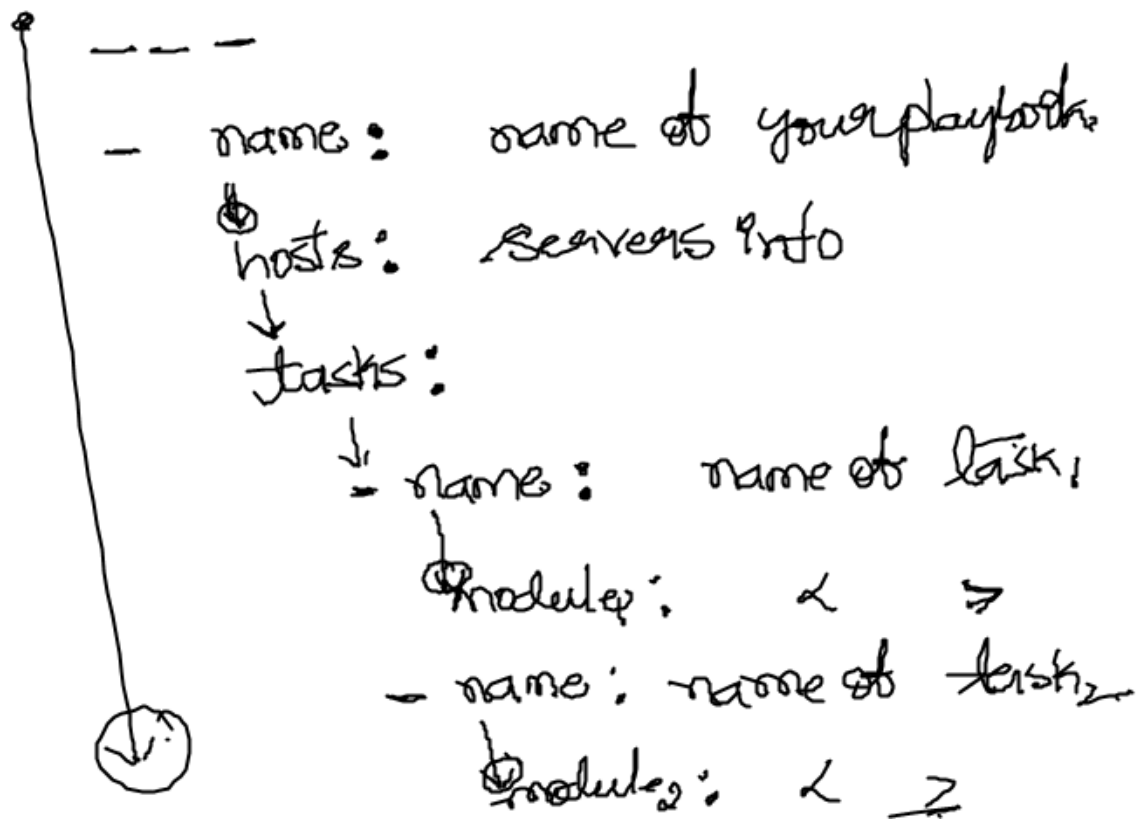 ---
- name: name of your playbook
hosts: servers info
tasks:
- name: name of task1
module1: < >
- name: name of task2
module2: < >